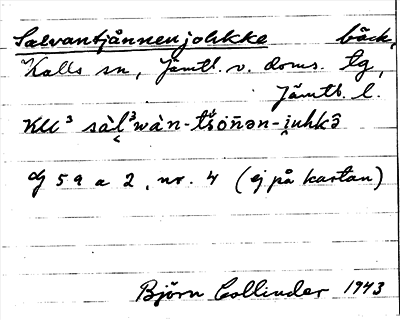 Saevantjånnenjohkke bäck,
Kalls sn, Jämtl. v. doms. lg,
Jämtl. l.
KU³ sàl̯³wàn-tš́òn̄ən-i̯uhkə̂
G 59 a 2, nr. 4 (ej på kartan)
Björn Collinder 1943